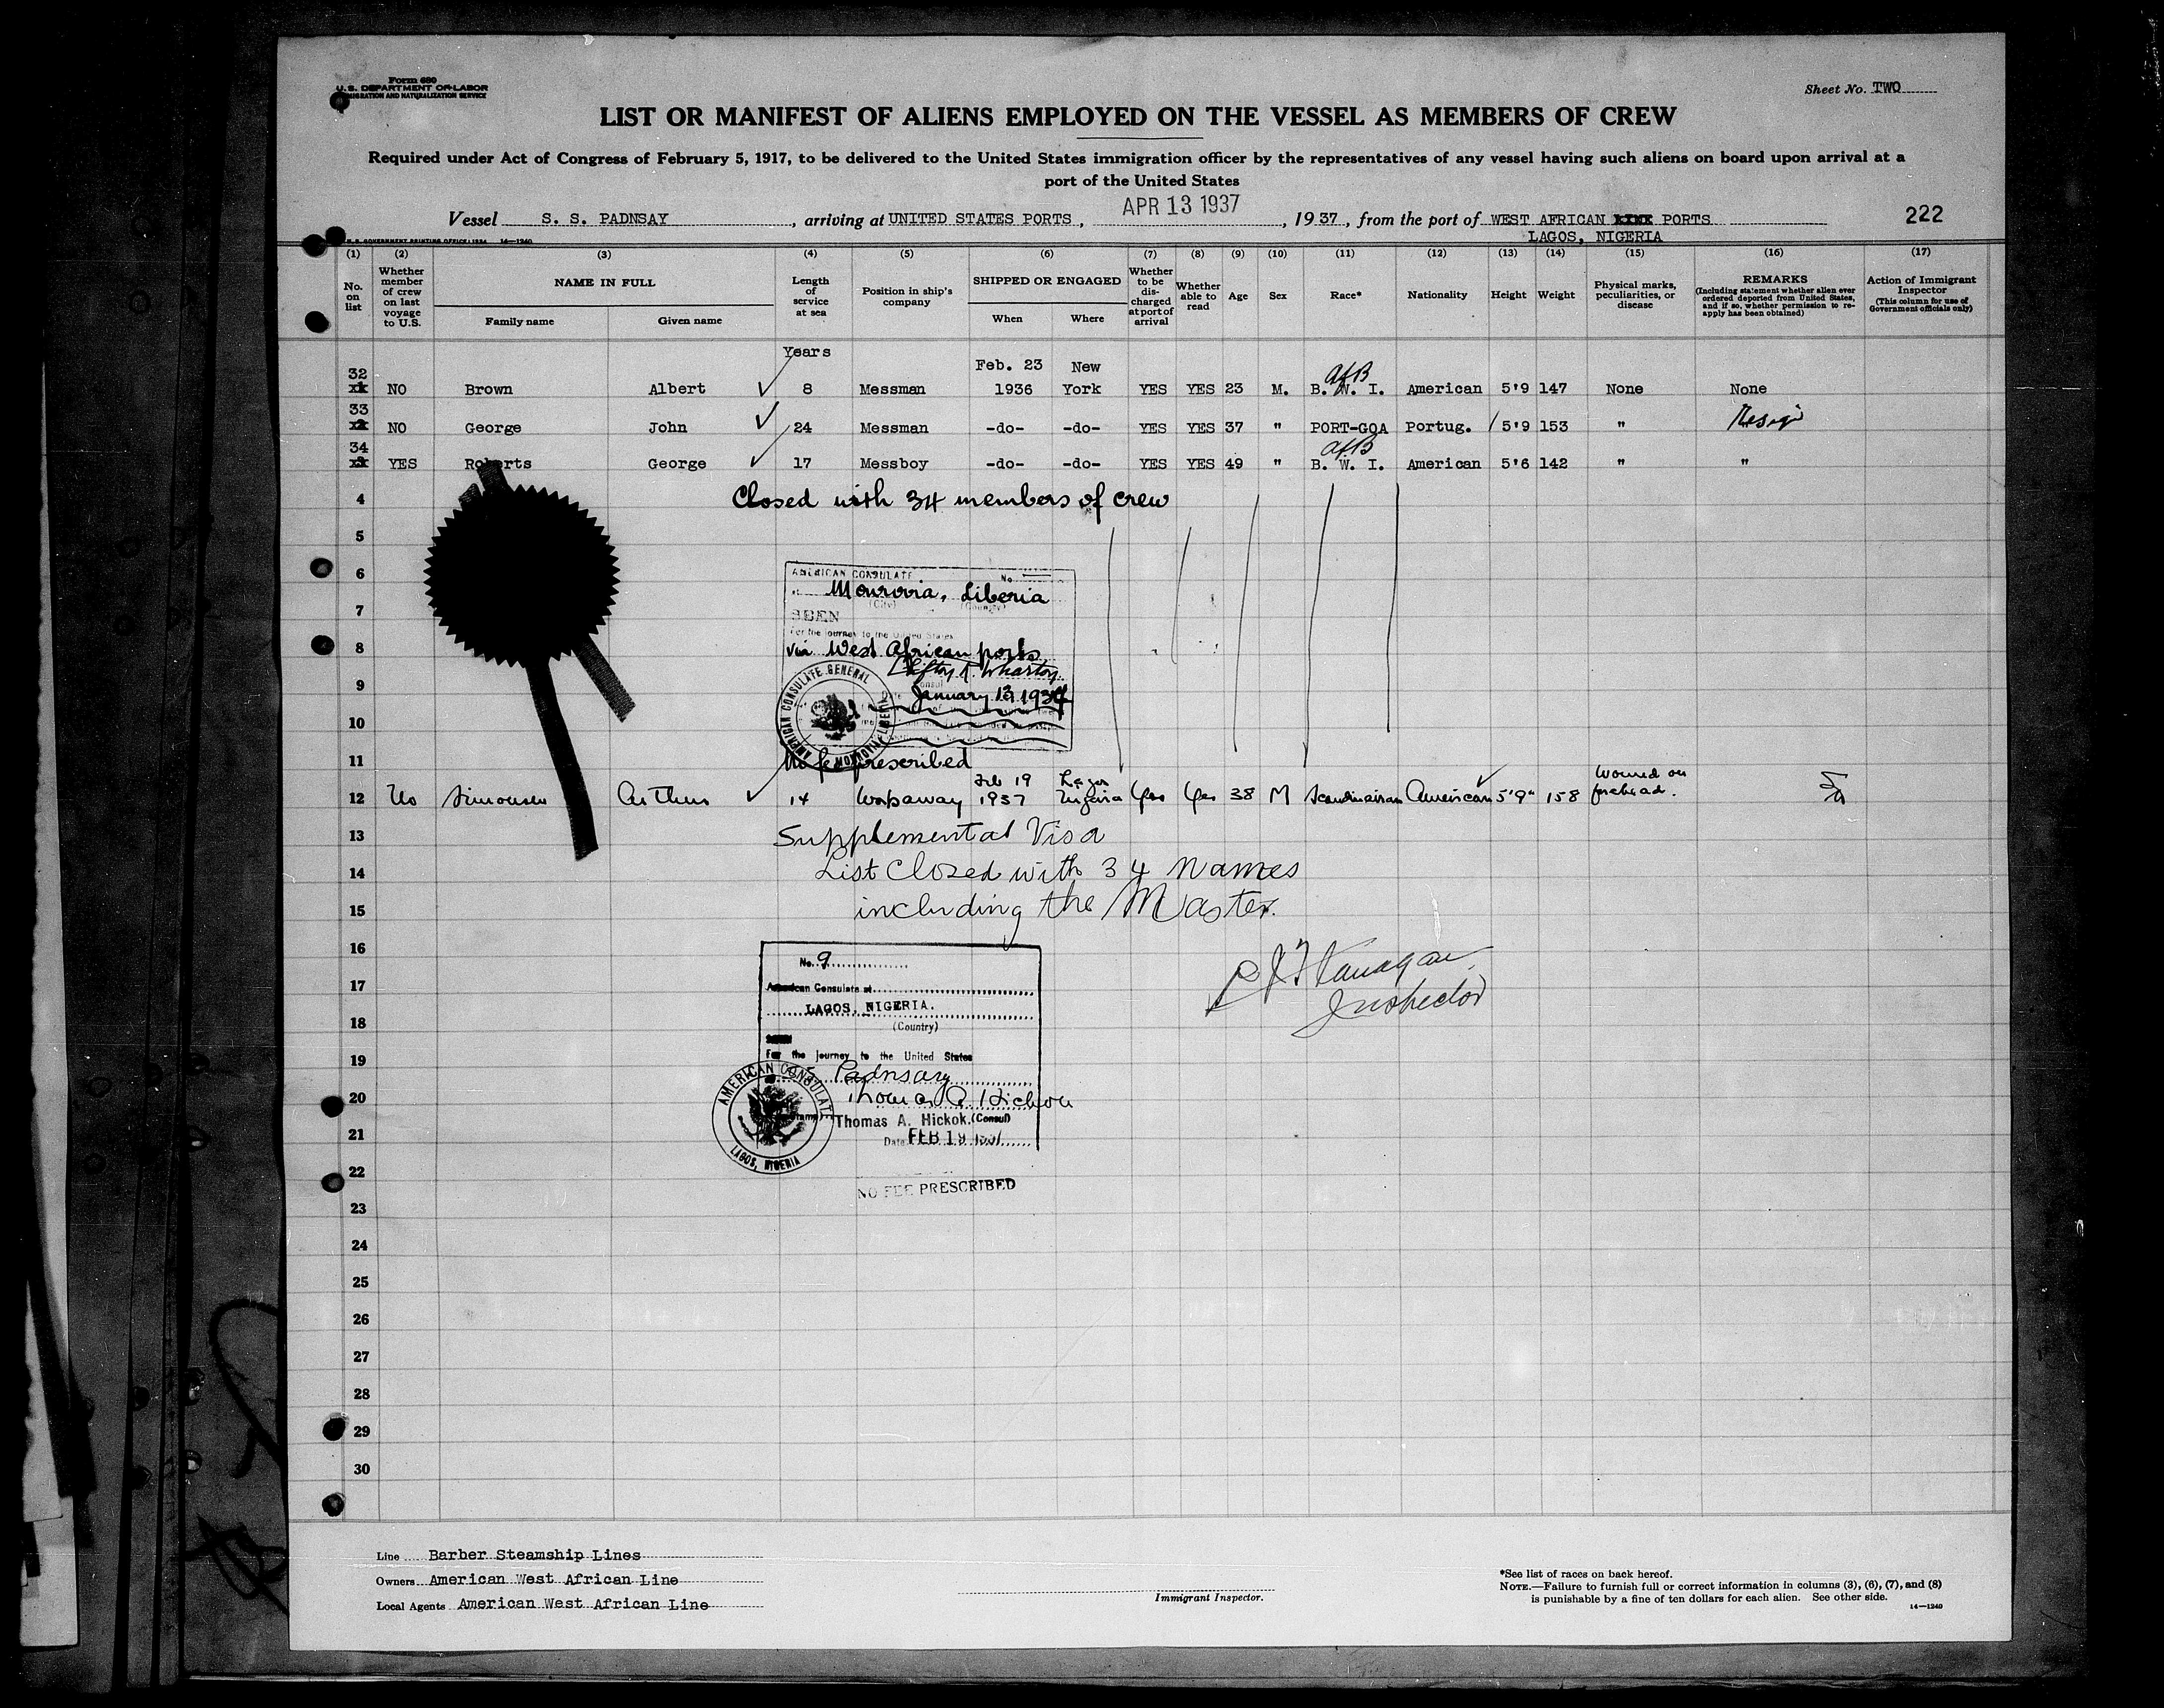 Form 680
U. S. DEPARTMENT OF LABOR
IMMIGRATION AND NATURALIZATION SERVICE
Sheet No. TWO
LIST OR MANIFEST OF ALIENS EMPLOYED ON THE VESSEL AS MEMBERS OF CREW
Required under Act of Congress of February 5, 1917, to be delivered to the United States immigration officer by the representatives of any vessel having such aliens on board upon arrival at a
port of the United States
Vessel S. S. PADNSAY, arriving at UNITED STATES PORTS, APR 13 1937, 1937, from the port of WEST AFRICAN PORTS
LAGOS, NIGERIA
222
U. S. GOVERNMENT PRINTING OFFICE: 1934 14—1240
(1) (2) (3) (4) (5) (6) (7) (8) (9) (10) (11) (12) (13) (14) (15) (16) (17)
No. on list
Whether member of crew on last voyage to U.S.
NAME IN FULL
Family name
Given name
Length of service at sea
Position in ship's company
SHIPPED OR ENGAGED
When
Where
Whether to be discharged at port of arrival
Whether able to read
Age
Sex
Race*
Nationality
Height
Weight
Physical marks, peculiarities, or disease
REMARKS
(Including statement whether alien ever ordered deported from United States, and if so, whether permission to re-apply has been obtained)
Action of Immigrant Inspector
(This column for use of Government officials only)
Years
Feb. 23 New
AfB
32 NO Brown Albert 8 Messman 1936 York YES YES 23 M. B. W. I. American 5'9 147 None None
33 NO George John 24 Messman -do- -do- YES YES 37 " PORT-GOA Portug. 5'9 153 "
AfB
34 YES Roberts George 17 Messboy -do- -do- YES YES 49 " B. W. I. American 5'6 142 " "
4 Closed with 34 members of crew
5
6 AMERICAN CONSULATE No.
Monrovia, Liberia
(City) (Country)
7 SEEN
For the journey to the United States
8 via West African ports
Clifton R. Wharton
Consul
9 Date January 13, 1937
10
AMERICAN CONSULATE GENERAL MONROVIA LIBERIA
11 No fee prescribed
Feb 19 Lagos Wound on
12 No Simonsen Arthur 14 Workaway 1937 Nigeria Yes Yes 38 M Scandinavian American 5'9" 158 forehead.
13 Supplemental Visa
14 List Closed with 34 Names
15 including the Master.
16 No. 9
17 American Consulate at
LAGOS, NIGERIA.
18 (Country)
SEEN
19 For the journey to the United States
SS Padnsay
20 Thomas A. Hickok
Thomas A. Hickok. (Consul)
21 Date FEB 19 1937
AMERICAN CONSULATE
LAGOS, NIGERIA
22
NO FEE PRESCRIBED
Flanagan
Inspector
23
24
25
26
27
28
29
30
Line Barber Steamship Lines
Owners American West African Line
Local Agents American West African Line
Immigrant Inspector.
*See list of races on back hereof.
NOTE.—Failure to furnish full or correct information in columns (3), (6), (7), and (8)
is punishable by a fine of ten dollars for each alien. See other side.
14—1240